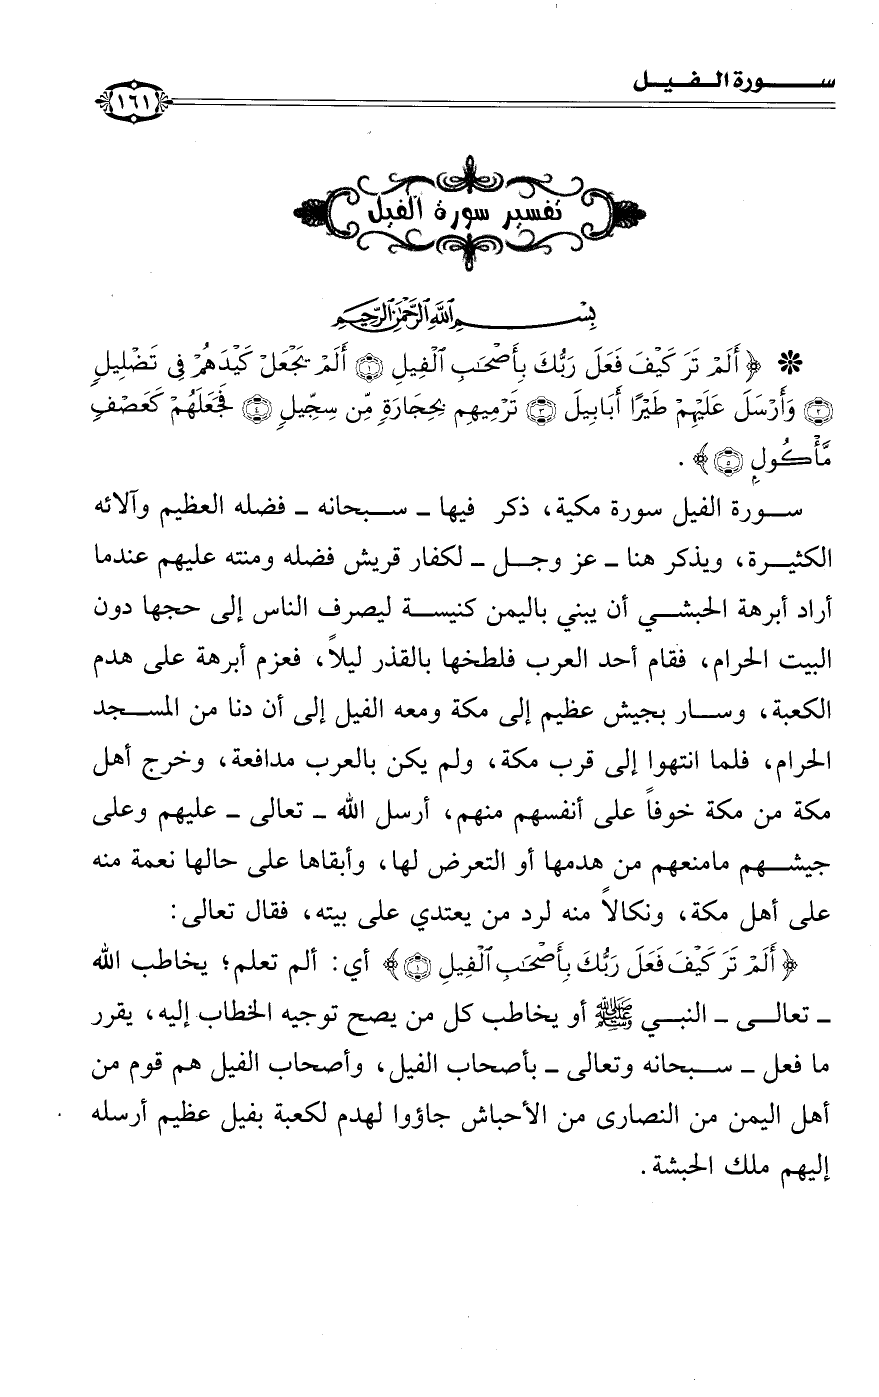 سورة الفيل
١٦١
تفسير سورة الفيل
بِسْمِ اللَّهِ الرَّحْمَٰنِ الرَّحِيمِ
* ﴿ أَلَمْ تَرَ كَيْفَ فَعَلَ رَبُّكَ بِأَصْحَٰبِ ٱلْفِيلِ ۝١ أَلَمْ يَجْعَلْ كَيْدَهُمْ فِى تَضْلِيلٍ
۝٢ وَأَرْسَلَ عَلَيْهِمْ طَيْرًا أَبَابِيلَ ۝٣ تَرْمِيهِم بِحِجَارَةٍ مِّن سِجِّيلٍ ۝٤ فَجَعَلَهُمْ كَعَصْفٍ
مَّأْكُولٍ ۝٥ ﴾ .
سورة الفيل سورة مكية، ذكر فيها ـ سبحانه ـ فضله العظيم وآلائه
الكثيرة، ويذكر هنا ـ عز وجل ـ لكفار قريش فضله ومنته عليهم عندما
أراد أبرهة الحبشي أن يبني باليمن كنيسة ليصرف الناس إلى حجها دون
البيت الحرام، فقام أحد العرب فلطخها بالقذر ليلاً، فعزم أبرهة على هدم
الكعبة، وسار بجيش عظيم إلى مكة ومعه الفيل إلى أن دنا من المسجد
الحرام، فلما انتهوا إلى قرب مكة، ولم يكن بالعرب مدافعة، وخرج أهل
مكة من مكة خوفاً على أنفسهم منهم، أرسل الله ـ تعالى ـ عليهم وعلى
جيشهم مامنعهم من هدمها أو التعرض لها، وأبقاها على حالها نعمة منه
على أهل مكة، ونكالاً منه لرد من يعتدي على بيته، فقال تعالى:
﴿ أَلَمْ تَرَ كَيْفَ فَعَلَ رَبُّكَ بِأَصْحَٰبِ ٱلْفِيلِ ۝١ ﴾ أي: ألم تعلم؛ يخاطب الله
ـ تعالى ـ النبي ﷺ أو يخاطب كل من يصح توجيه الخطاب إليه، يقرر
ما فعل ـ سبحانه وتعالى ـ بأصحاب الفيل، وأصحاب الفيل هم قوم من
أهل اليمن من النصارى من الأحباش جاؤوا لهدم لكعبة بفيل عظيم أرسله
إليهم ملك الحبشة.